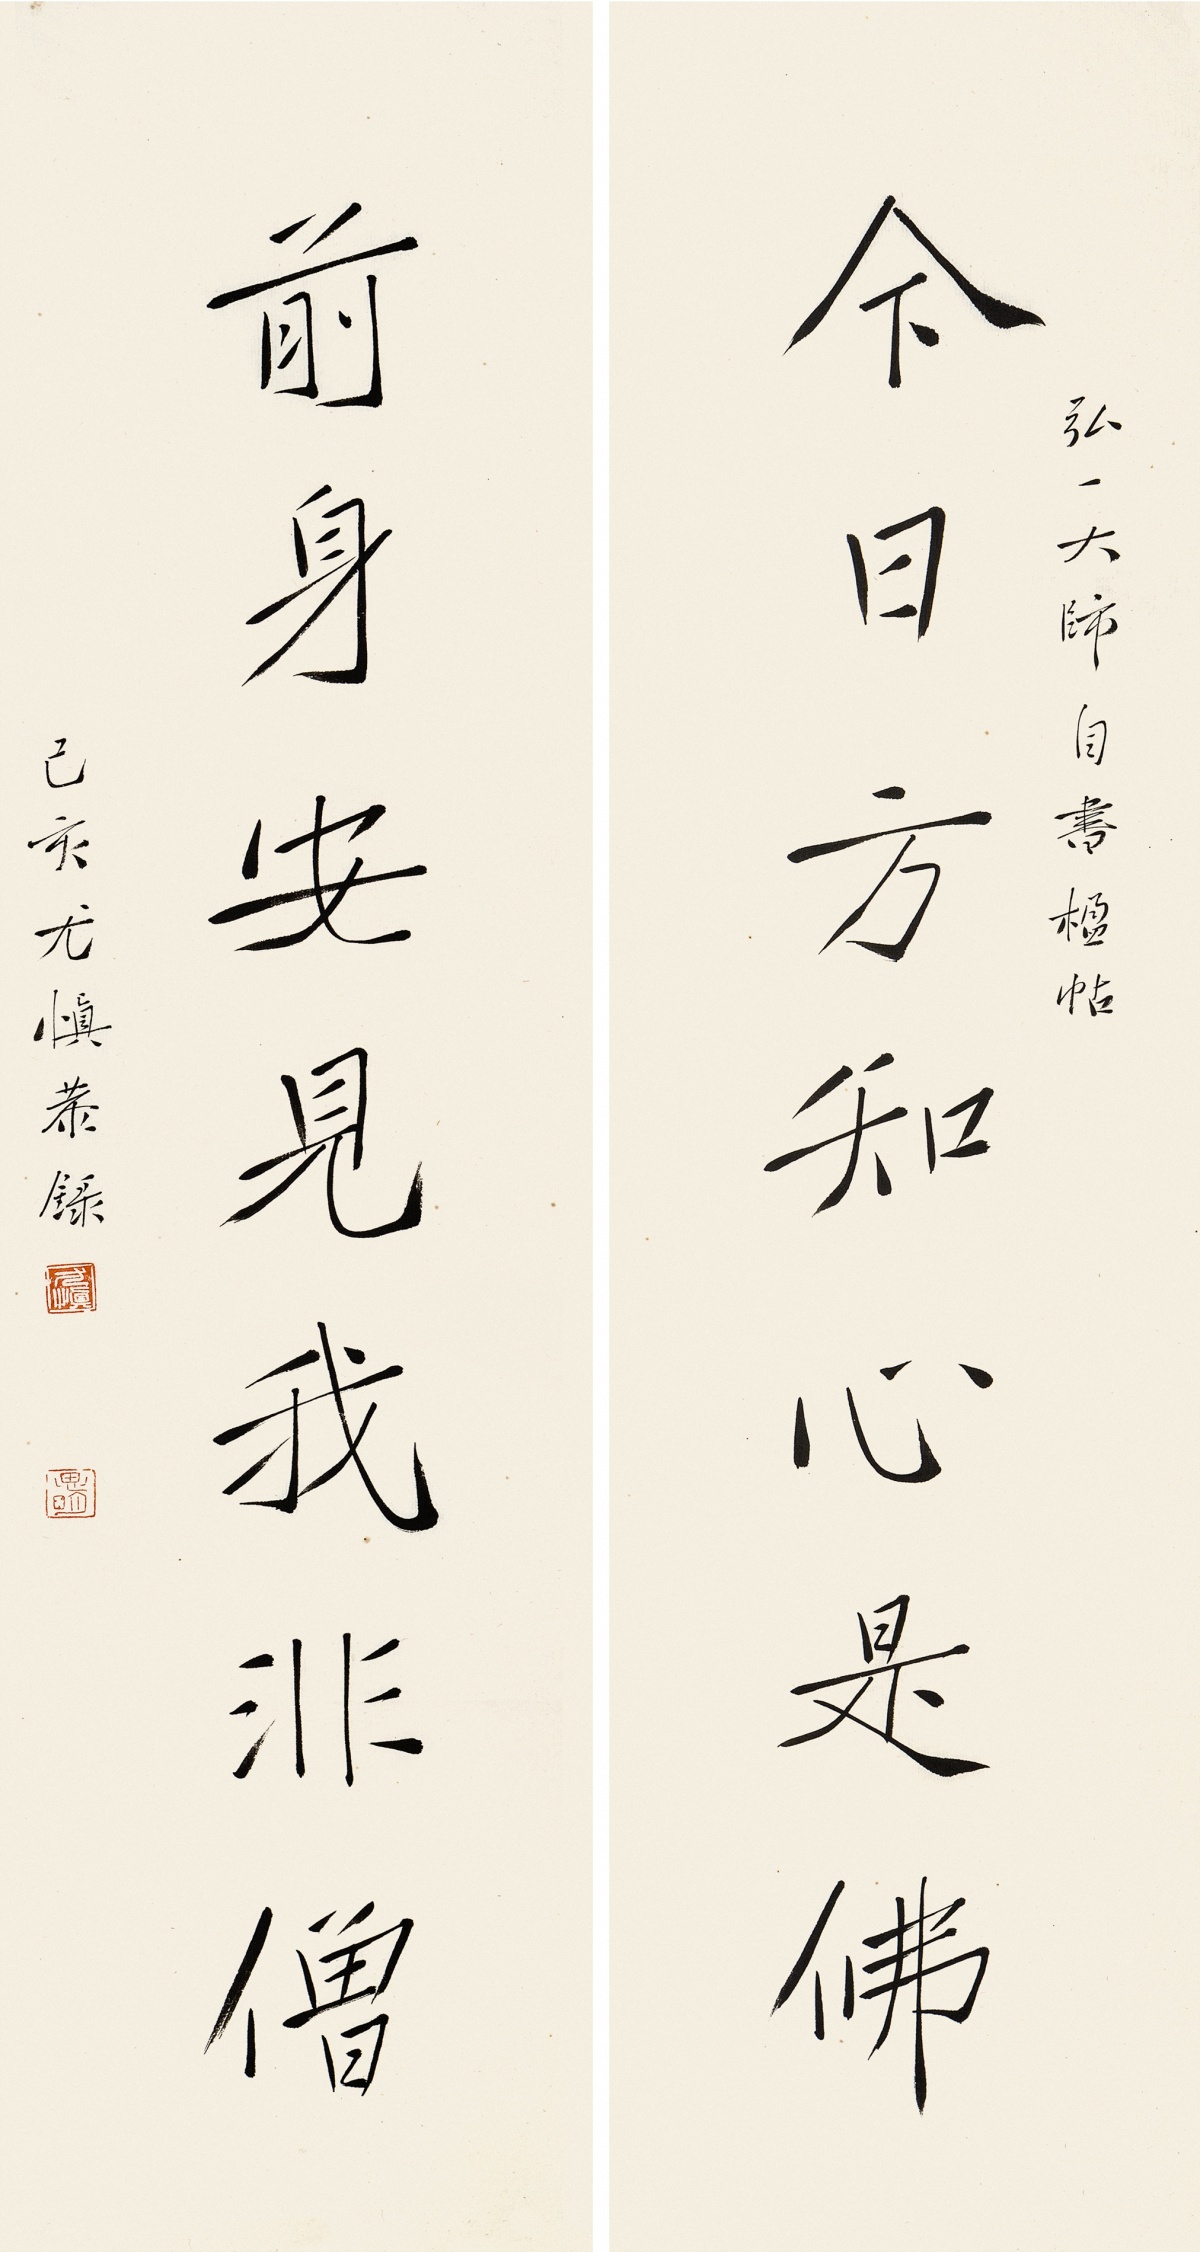 弘一大師自書楹帖
今日方知心是佛
前身安見我非僧
己亥尤慎恭錄